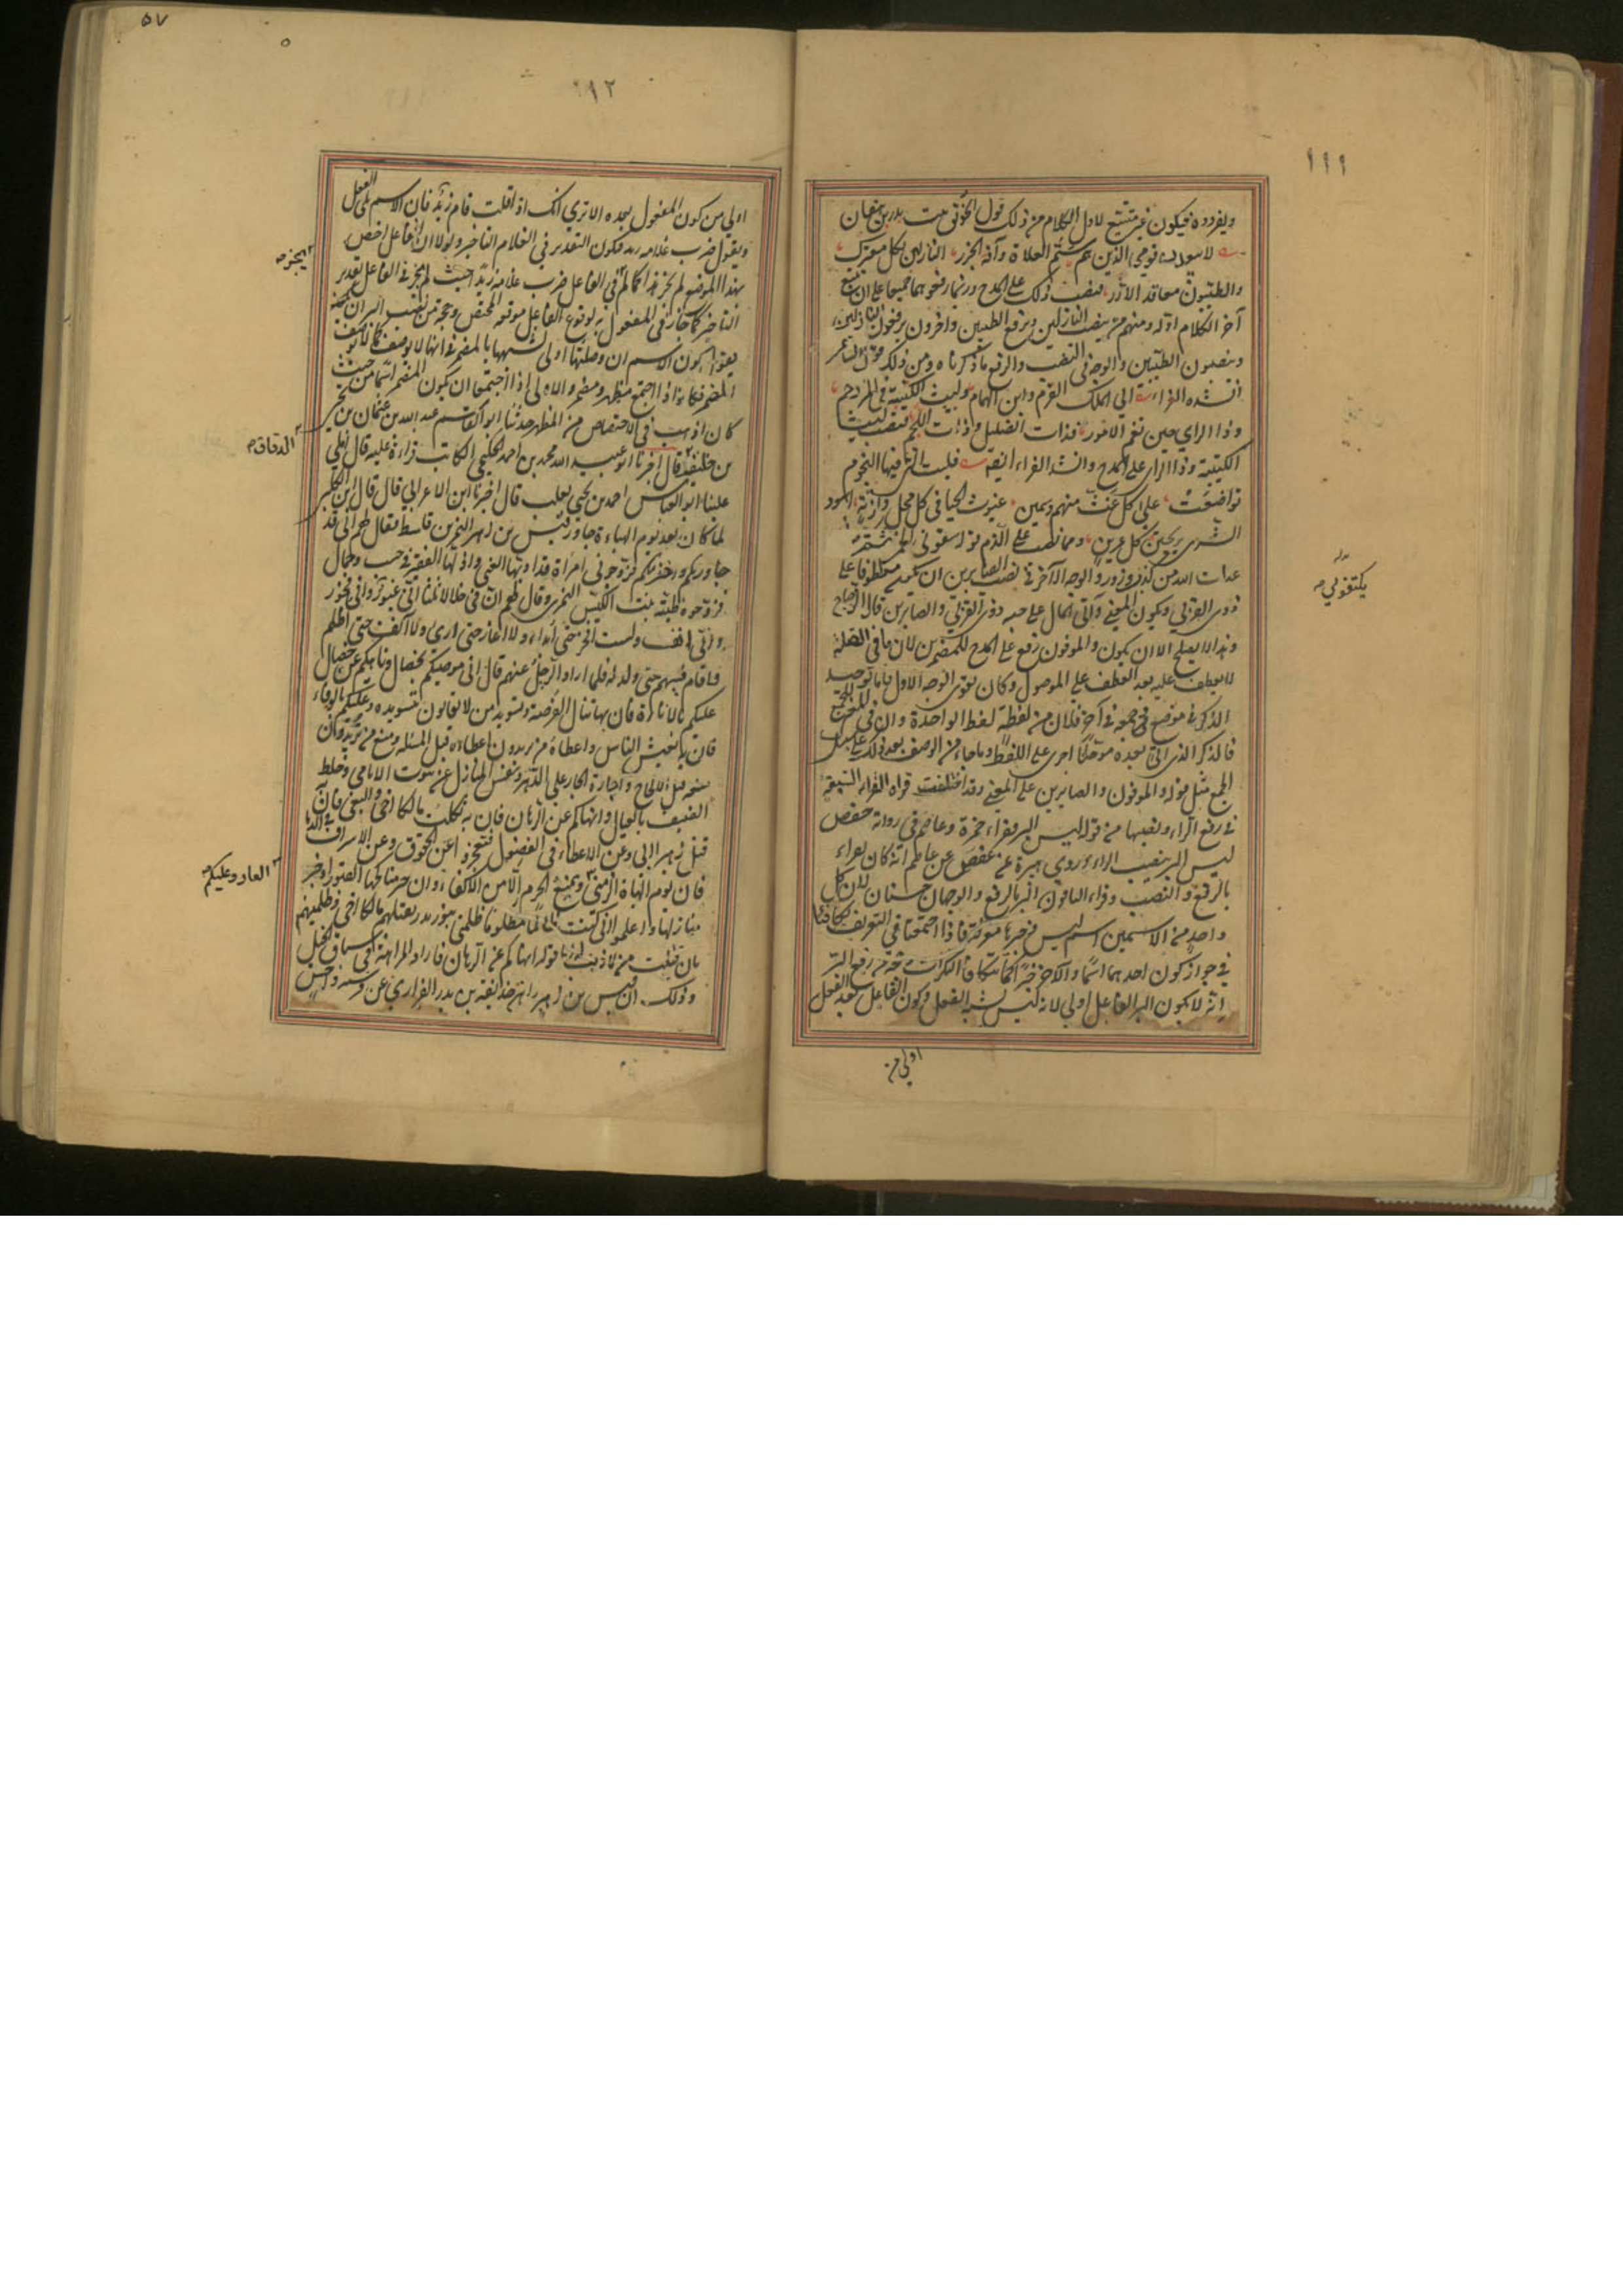 ١١١
ويفردوه فيكون غير متبع لاول الكلام من ذلك قول الخرنق بنت بدر بن هفان
لا يبعدن قومي الذين هم سم العداة وآفة الجزر النازلين بكل معترك
والطيبون معاقد الازر فنصب ذلك على المدح وربما رفعوهما جميعا على ان يتبع
آخر الكلام اوله ومنهم من ينصب النازلين ويرفع الطيبين وآخرون يرفعون النازلين
وينصبون الطيبين والوجه في النصب والرفع ما ذكرناه ومن ذلك قول الشاعر
انشده الفراء الى الملك القرم وابن الهمام وليث الكتيبة في المزدحم
وذا الراي حين تغم الامور بذات الصليل وذات اللجم فنصب ليث
الكتيبة وذا الراي على المدح وانشد الفراء ايضا فليت التي فيها النجوم
تواضعت على كل غث منهم وسمين غيوث الحيا في كل محل ولزبة اسود
الشرى يحمين كل عرين ومما نصب على الذم سقوني الخمر ثم تكنفوني
عداة الله من كذب وزور والوجه الآخر في نصب الصابرين ان يكون معطوفا على
ذوي القربى ويكون المعنى وآتى المال على حبه ذوي القربى والصابرين قال الزجاج
وهذا لا يصلح الا ان يكون والموفون رفع على المدح للمضمرين لان ما في الصلة
لا يعطف عليه بعد العطف على الموصول وكان يقوي الوجه الاول فاما توحيد
الذكر في موضع وجمعه في آخر فلان من لفظه لفظ الواحدة وان في المعنى للجمع
فالذكر الذي اتى بعده موحدا اجري على اللفظ وما جاء من الوصف بعد ذلك على سبيل
الجمع مثل قوله والموفون والصابرين على المعنى وقد اختلفت قراة القراء السبعة
في رفع الراء ونصبها من قوله ليس البر فقراء حمزة وعاصم في رواية حفص
ليس البر بنصب الراء وروى هبيرة عن حفص عن عاصم انه كان يقراء
بالرفع والنصب وقراء الباقون البر بالرفع والوجهان حسنان لان كل
واحد من الاسمين اسم ليس وخبرها معرفة فاذا اجتمعا في التعريف تكافئا
في جواز كون احدهما اسما والآخر خبرا كما تتكافأ النكرات وحجة من رفع البر
انه لان يكون البر الفاعل اولى لانه ليس يشبه الفعل وكون الفاعل بعد الفعل
اولى من
تكنفوني
١١٢
٥٧
اولى من كون المفعول بعده الا ترى انك اذا قلت قام زيد فان الاسم يلي الفعل
ويقول ضرب غلامه زيد فيكون التقدير في الغلام التاخير ولولا ان الفاعل اخص
بهذا الموضع لم يجز هذا كما لم في الفاعل ضرب غلامه زيدا حيث لم يجز في الفاعل تقدير
التاخير كما جاز في المفعول به لوقوع الفاعل موقعه المختص وحجة من نصب البر ان
يقول كون الاسم ان وصلتها اولى لشبهها بالمضمر في انها لا يوصف كما لا يوصف
المضمر فكانه اذا اجتمع مظهر ومضمر والاولى اذا اجتمعا ان يكون المضمر اسما من حيث
كان اذهب في الاختصاص من المظهر حدثنا ابو القاسم عبد الله بن عثمان بن يحيى
بن جنيقا قال اخبرنا ابو عبيد الله محمد بن احمد الحكيمي الكاتب قراءة عليه قال املى
علينا ابو العباس احمد بن يحيى ثعلب قال اخبرنا ابن الاعرابي قال قال ابن الكلبي
لما كان بعد يوم الهباءة جاور قيس بن زهير النمر بن قاسط فقال لهم اني قد
جاورتكم واخترتكم فزوجوني امراة قد ادبها الغنى واذلها الفقر في حسب وجمال
فزوجوه ظبية بنت الكيس النمري وقال لهم ان في خلالا ثلثا اني غيور واني فخور
واني انف ولست افخر حتى ابداء ولا اغار حتى ارى ولا آنف حتى اظلم
فاقام فيهم حتى ولد له فلما اراد الرحيل عنهم قال اني موصيكم بخصال وناهيكم عن خصال
عليكم بالاناة فان بها تنال الفرصة وتسويد من لا تعابون بتسويده وعليكم بالوفاء
فان به يعيش الناس واعطاء من تريدون اعطاءه قبل المسئلة ومنع من تريدون
منعه قبل الالحاح واجارة الجار على الدهر وتنفيس المنازل عن بيوت الايامى وخلط
الضيف بالعيال وانهاكم عن الرهان فان به ثكلت مالكا اخي والبغي فانه
قتل زهيرا ابي وعن الاعطاء في الفضول فتعجزوا عن الحقوق وعن الاسراف في الدماء
فان يوم الهباة الزمني ومنع الحرم الا من الاكفاء وان خير مناكحها القبور او خير
منازلها واعلموا اني كنت ظالما مظلوما ظلمني بنو بدر بقتلهم مالكا اخي وظلمتهم
بان قتلت من لا ذنب له قوله انهاكم عن الرهان فاراد المراهنة في سباق الخيل
وذلك ان قيس بن زهير راهن حذيفة بن بدر الفزاري عن فرسه داحس
يجز
الدقاق
العار وعليكم